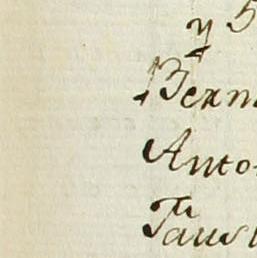 y 5
Bern
Anto
Faus